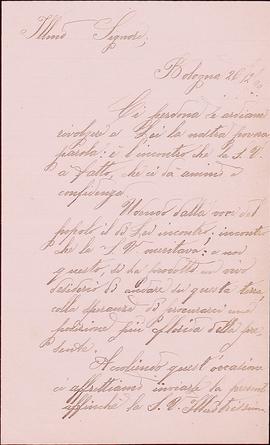 Illmo Signore,
Bologna 26/2
Ci perdona se ardiam
rivolgere a Lei la nostra povera
parola: è l'incontro che la S. V.
à fatto, che ci dà animo e
confidenza
dalla voce del
popolo il di Lei incontro; incontro
che la S. V. meritava: e non
questo, si da un vivo
desiderio di andare in questa terra
colla speranza di procurarci una
posizione più della pre
sente.
Accogliendo quest'occasione
ci affrettiamo inviare la presente
affinchè la S. V. Illustrissima